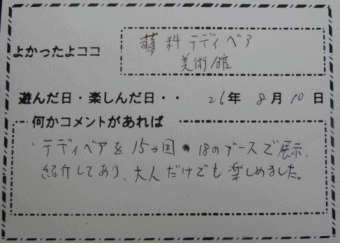 よかったよココ
蓼科テディベア
美術館
遊んだ日・楽しんだ日・・ 26年 8月 10日
何かコメントがあれば
テディベアを15ヶ国・18のブースで展示、
紹介してあり、大人だけでも楽しめました。